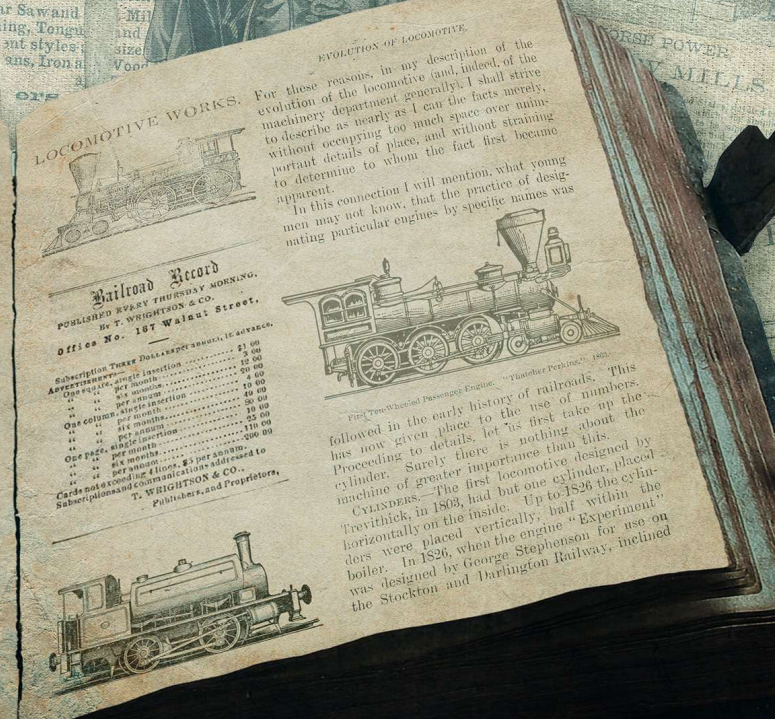 ar Saw and
ing, Tongu
ent styles
ans, Iron a
ers
Mil
and
size
Wood
HORSE POWER
MILLS
LOCOMOTIVE WORKS.
Railroad Record
PUBLISHED EVERY THURSDAY MORNING,
By T. WRIGHTSON & CO.
Office No. 167 Walnut Street,
Subscription THREE DOLLARS per annum, in advance.
ADVERTISEMENTS—
One square, single insertion $1 00
" " per month 3 00
" " six months 12 00
" " per annum 20 00
One column, single insertion
" " per month 10 00
" " six months
" " per annum 80 00
One page, single insertion
" " per month 25 00
" " six months 110 00
" " per annum 200 00
Cards not exceeding 4 lines, $5 per annum.
Subscriptions and communications addressed to
T. WRIGHTSON & CO.,
Publishers, and Proprietors,
EVOLUTION OF LOCOMOTIVE.
For these reasons, in my description of the
evolution of the locomotive (and, indeed, of the
machinery department generally), I shall strive
to describe as nearly as I can the facts merely,
without occupying too much space over unim-
portant details of place, and without straining
to determine to whom the fact first became
apparent.
In this connection I will mention, what young
men may not know, that the practice of desig-
nating particular engines by specific names was
First Ten-Wheeled Passenger-Engine, "Thatcher Perkins,"
followed in the early history of railroads. This
has now given place to the use of numbers.
Proceeding to details, let us first take up the
cylinder. Surely there is nothing about the
machine of greater importance than this.
CYLINDERS.—The first locomotive designed by
Trevithick, in 1803, had but one cylinder, placed
horizontally on the inside. Up to 1826 the cylin-
ders were placed vertically, half within the
boiler. In 1826, when the engine "Experiment"
was designed by George Stephenson for use on
the Stockton and Darlington Railway, inclined